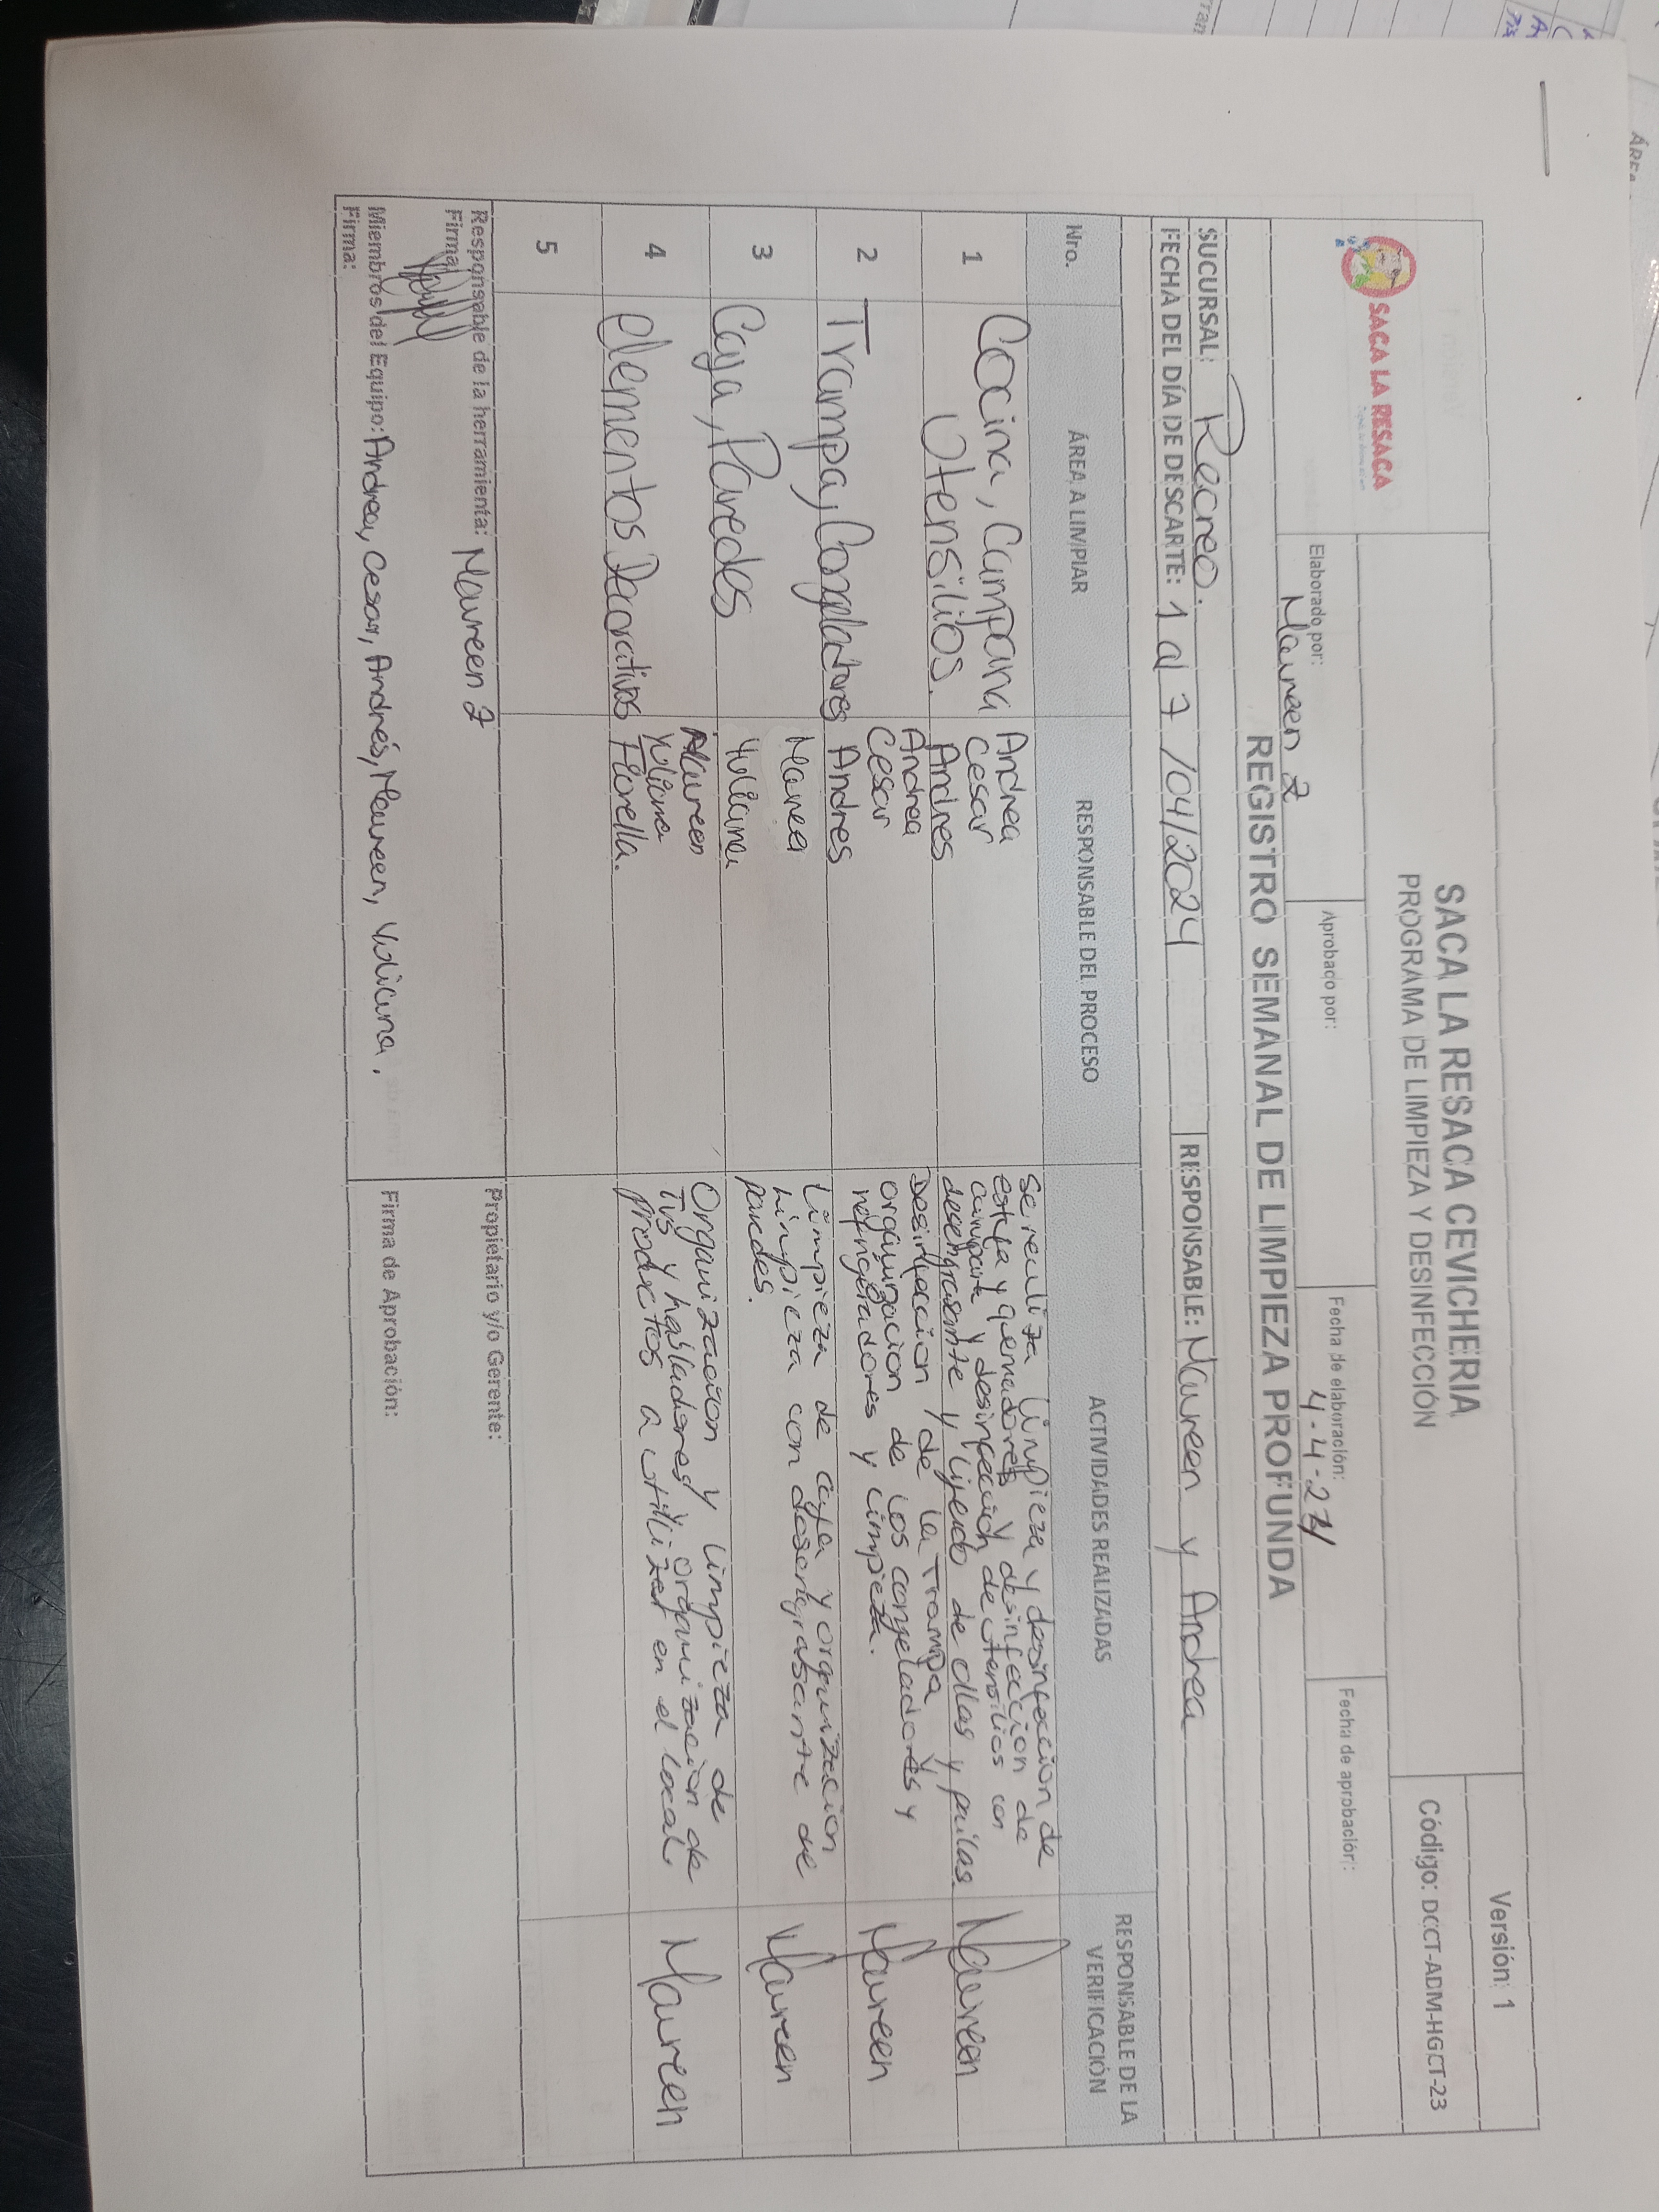 SACA LA RESACA
SACA LA RESACA CEVICHERIA
PROGRAMA DE LIMPIEZA Y DESINFECCIÓN
Versión: 1
Código: DCCT-ADM-HGCT-23
Elaborado por:
Maureen Z
Aprobado por:
Fecha de elaboración:
4-4-24
Fecha de aprobación:
REGISTRO SEMANAL DE LIMPIEZA PROFUNDA
SUCURSAL: Recreo.
FECHA DEL DÍA DE DESCARTE: 1 al 7 /04/2024
RESPONSABLE: Maureen y Andrea
Nro.
ÁREA A LIMPIAR
RESPONSABLE DEL PROCESO
ACTIVIDADES REALIZADAS
RESPONSABLE DE LA
VERIFICACIÓN
1
Cocina, Campana
Utensilios.
Andrea
Cesar
Andres
Se realiza limpieza y desinfeccion de
estufa y quemadores y desinfeccion de
campana y desinfección de utensilios con
desengrasante y lijado de ollas y pailas.
Maureen
2
Trampa, Congeladores
Andrea
Cesar
Andres
Desinfeccion de la Trampa y
organizacion de los congeladores y
refrigeradores y limpieza.
Maureen
3
Caja, Paredes
Yuliana
Limpieza de caja y organizacion
Limpieza con desengrasante de
paredes.
Maureen
4
Elementos Decorativos
Maureen
Yuliana
Fiorella.
Organización y limpieza de
Tvs y habladores y organizacion de
productos a utilizar en el local.
Maureen
5
Responsable de la herramienta: Maureen Z
Firma:
Propietario y/o Gerente:
Miembros del Equipo: Andrea, Cesar, Andrés, Maureen, Yuliana.
Firma:
Firma de Aprobación: